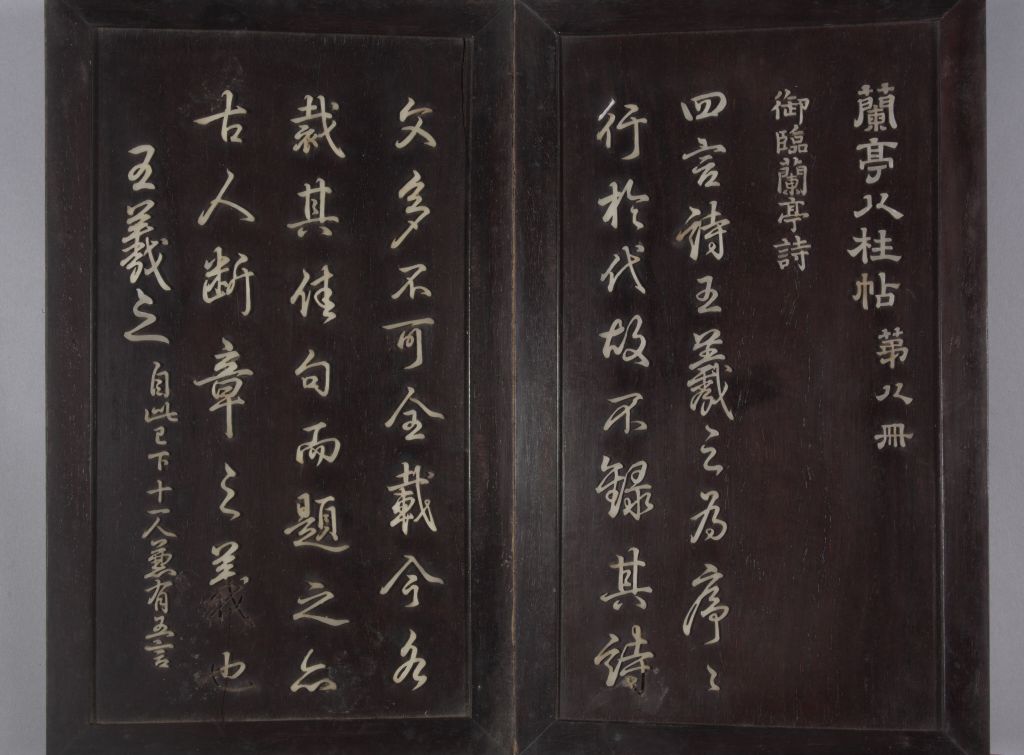 蘭亭八柱帖 第八冊
御臨蘭亭詩
四言詩王羲之為序々
行於代故不録其詩
文多不可全載今各
裁其佳句而題之亦
古人斷章之義也
王羲之 自此已下十一人兼有五言